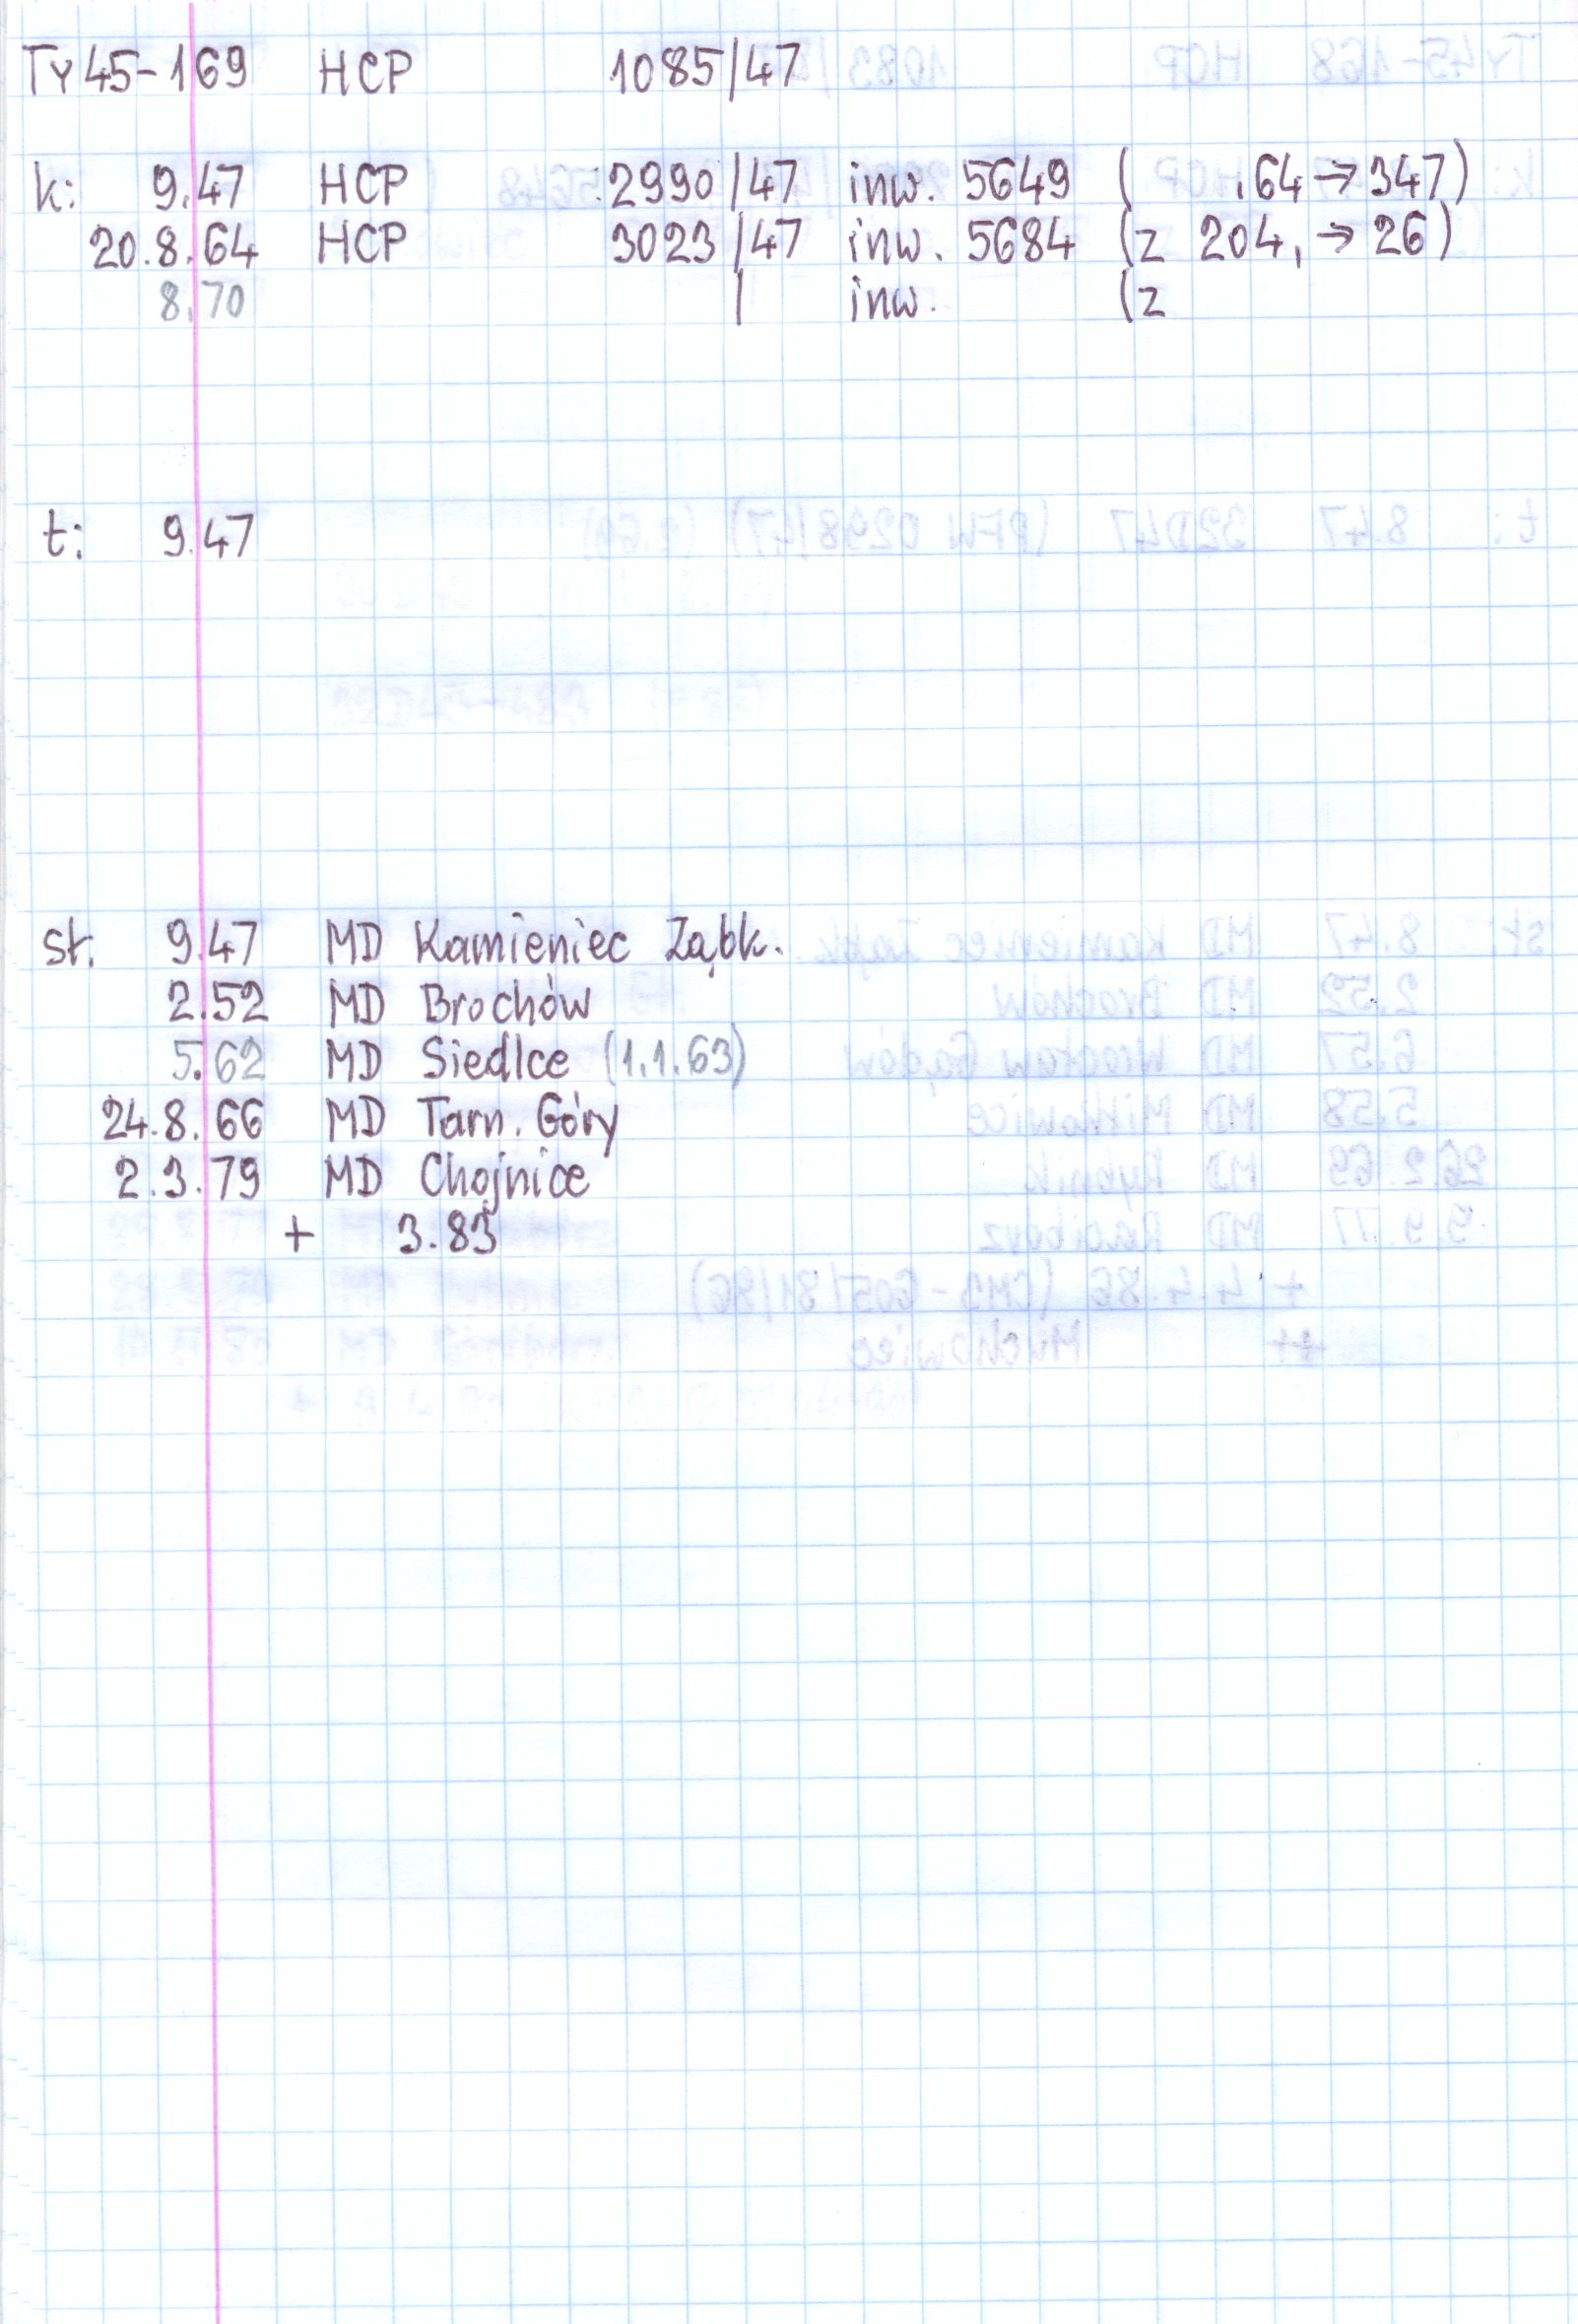 Ty45-169 HCP 1085/47
k: 9.47 HCP 2990/47 inw. 5649 ( .64→347)
20.8.64 HCP 3023/47 inw. 5684 (z 204, →26)
8.70 / inw. (z
t: 9.47
st. 9.47 MD Kamieniec Ząbk.
2.52 MD Brochów
5.62 MD Siedlce (1.1.63)
24.8.66 MD Tarn. Góry
2.3.79 MD Chojnice
+ 3.83